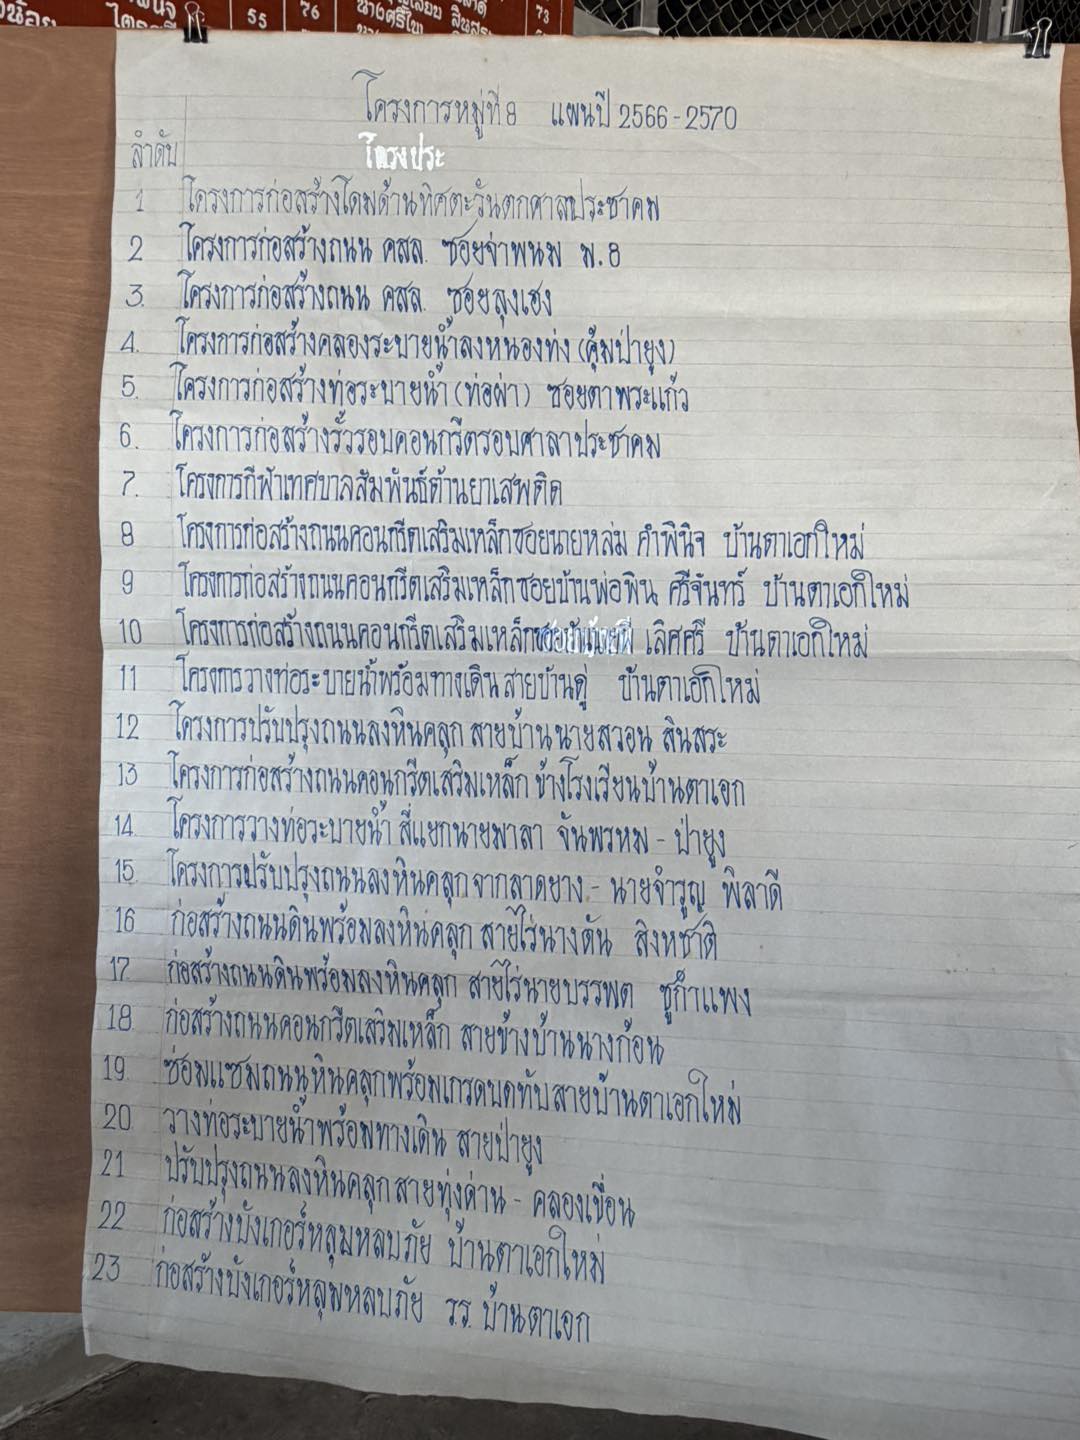 55 76 73
โครงการหมู่ที่ 8 แผนปี 2566 - 2570
ลำดับ
1 โครงการก่อสร้างโดมด้านทิศตะวันตกศาลประชาคม
2 โครงการก่อสร้างถนน คสล. ซอยจ่าพนม ม.8
3. โครงการก่อสร้างถนน คสล. ซอยลุงเฮง
4. โครงการก่อสร้างคลองระบายน้ำลงหนองท่ง (คุ้มป่ายูง)
5. โครงการก่อสร้างท่อระบายน้ำ (ท่อผ่า) ซอยตาพระแก้ว
6. โครงการก่อสร้างรั้วรอบคอนกรีตรอบศาลาประชาคม
7. โครงการกีฬาเทศบาลสัมพันธ์ต้านยาเสพติด
8 โครงการก่อสร้างถนนคอนกรีตเสริมเหล็กซอยนายหล่ม คำพินิจ บ้านตาเอกใหม่
9 โครงการก่อสร้างถนนคอนกรีตเสริมเหล็กซอยบ้านพ่อพิน ศรีจันทร์ บ้านตาเอกใหม่
10 โครงการก่อสร้างถนนคอนกรีตเสริมเหล็ก เลิศศรี บ้านตาเอกใหม่
11 โครงการวางท่อระบายน้ำพร้อมทางเดิน สายบ้านดู่ บ้านตาเอกใหม่
12 โครงการปรับปรุงถนนลงหินคลุก สายบ้านนายสวอน สินสระ
13 โครงการก่อสร้างถนนคอนกรีตเสริมเหล็ก ข้างโรงเรียนบ้านตาเอก
14. โครงการวางท่อระบายน้ำ สี่แยกนายมาลา จันพรหม - ป่ายูง
15. โครงการปรับปรุงถนนลงหินคลุกจากลาดยาง - นายจำรูญ พิลาดี
16 ก่อสร้างถนนดินพร้อมลงหินคลุก สายไร่นางดัน สิงหชาติ
17. ก่อสร้างถนนดินพร้อมลงหินคลุก สายไร่นายบรรพต ชูกำแพง
18. ก่อสร้างถนนคอนกรีตเสริมเหล็ก สายข้างบ้านนางก้อน
19. ซ่อมแซมถนนหินคลุกพร้อมเกรดบดทับสายบ้านตาเอกใหม่
20. วางท่อระบายน้ำพร้อมทางเดิน สายป่ายูง
21 ปรับปรุงถนนลงหินคลุกสายทุ่งด่าน - คลองเขื่อน
22 ก่อสร้างบังเกอร์หลุมหลบภัย บ้านตาเอกใหม่
23 ก่อสร้างบังเกอร์หลุมหลบภัย รร. บ้านตาเอก